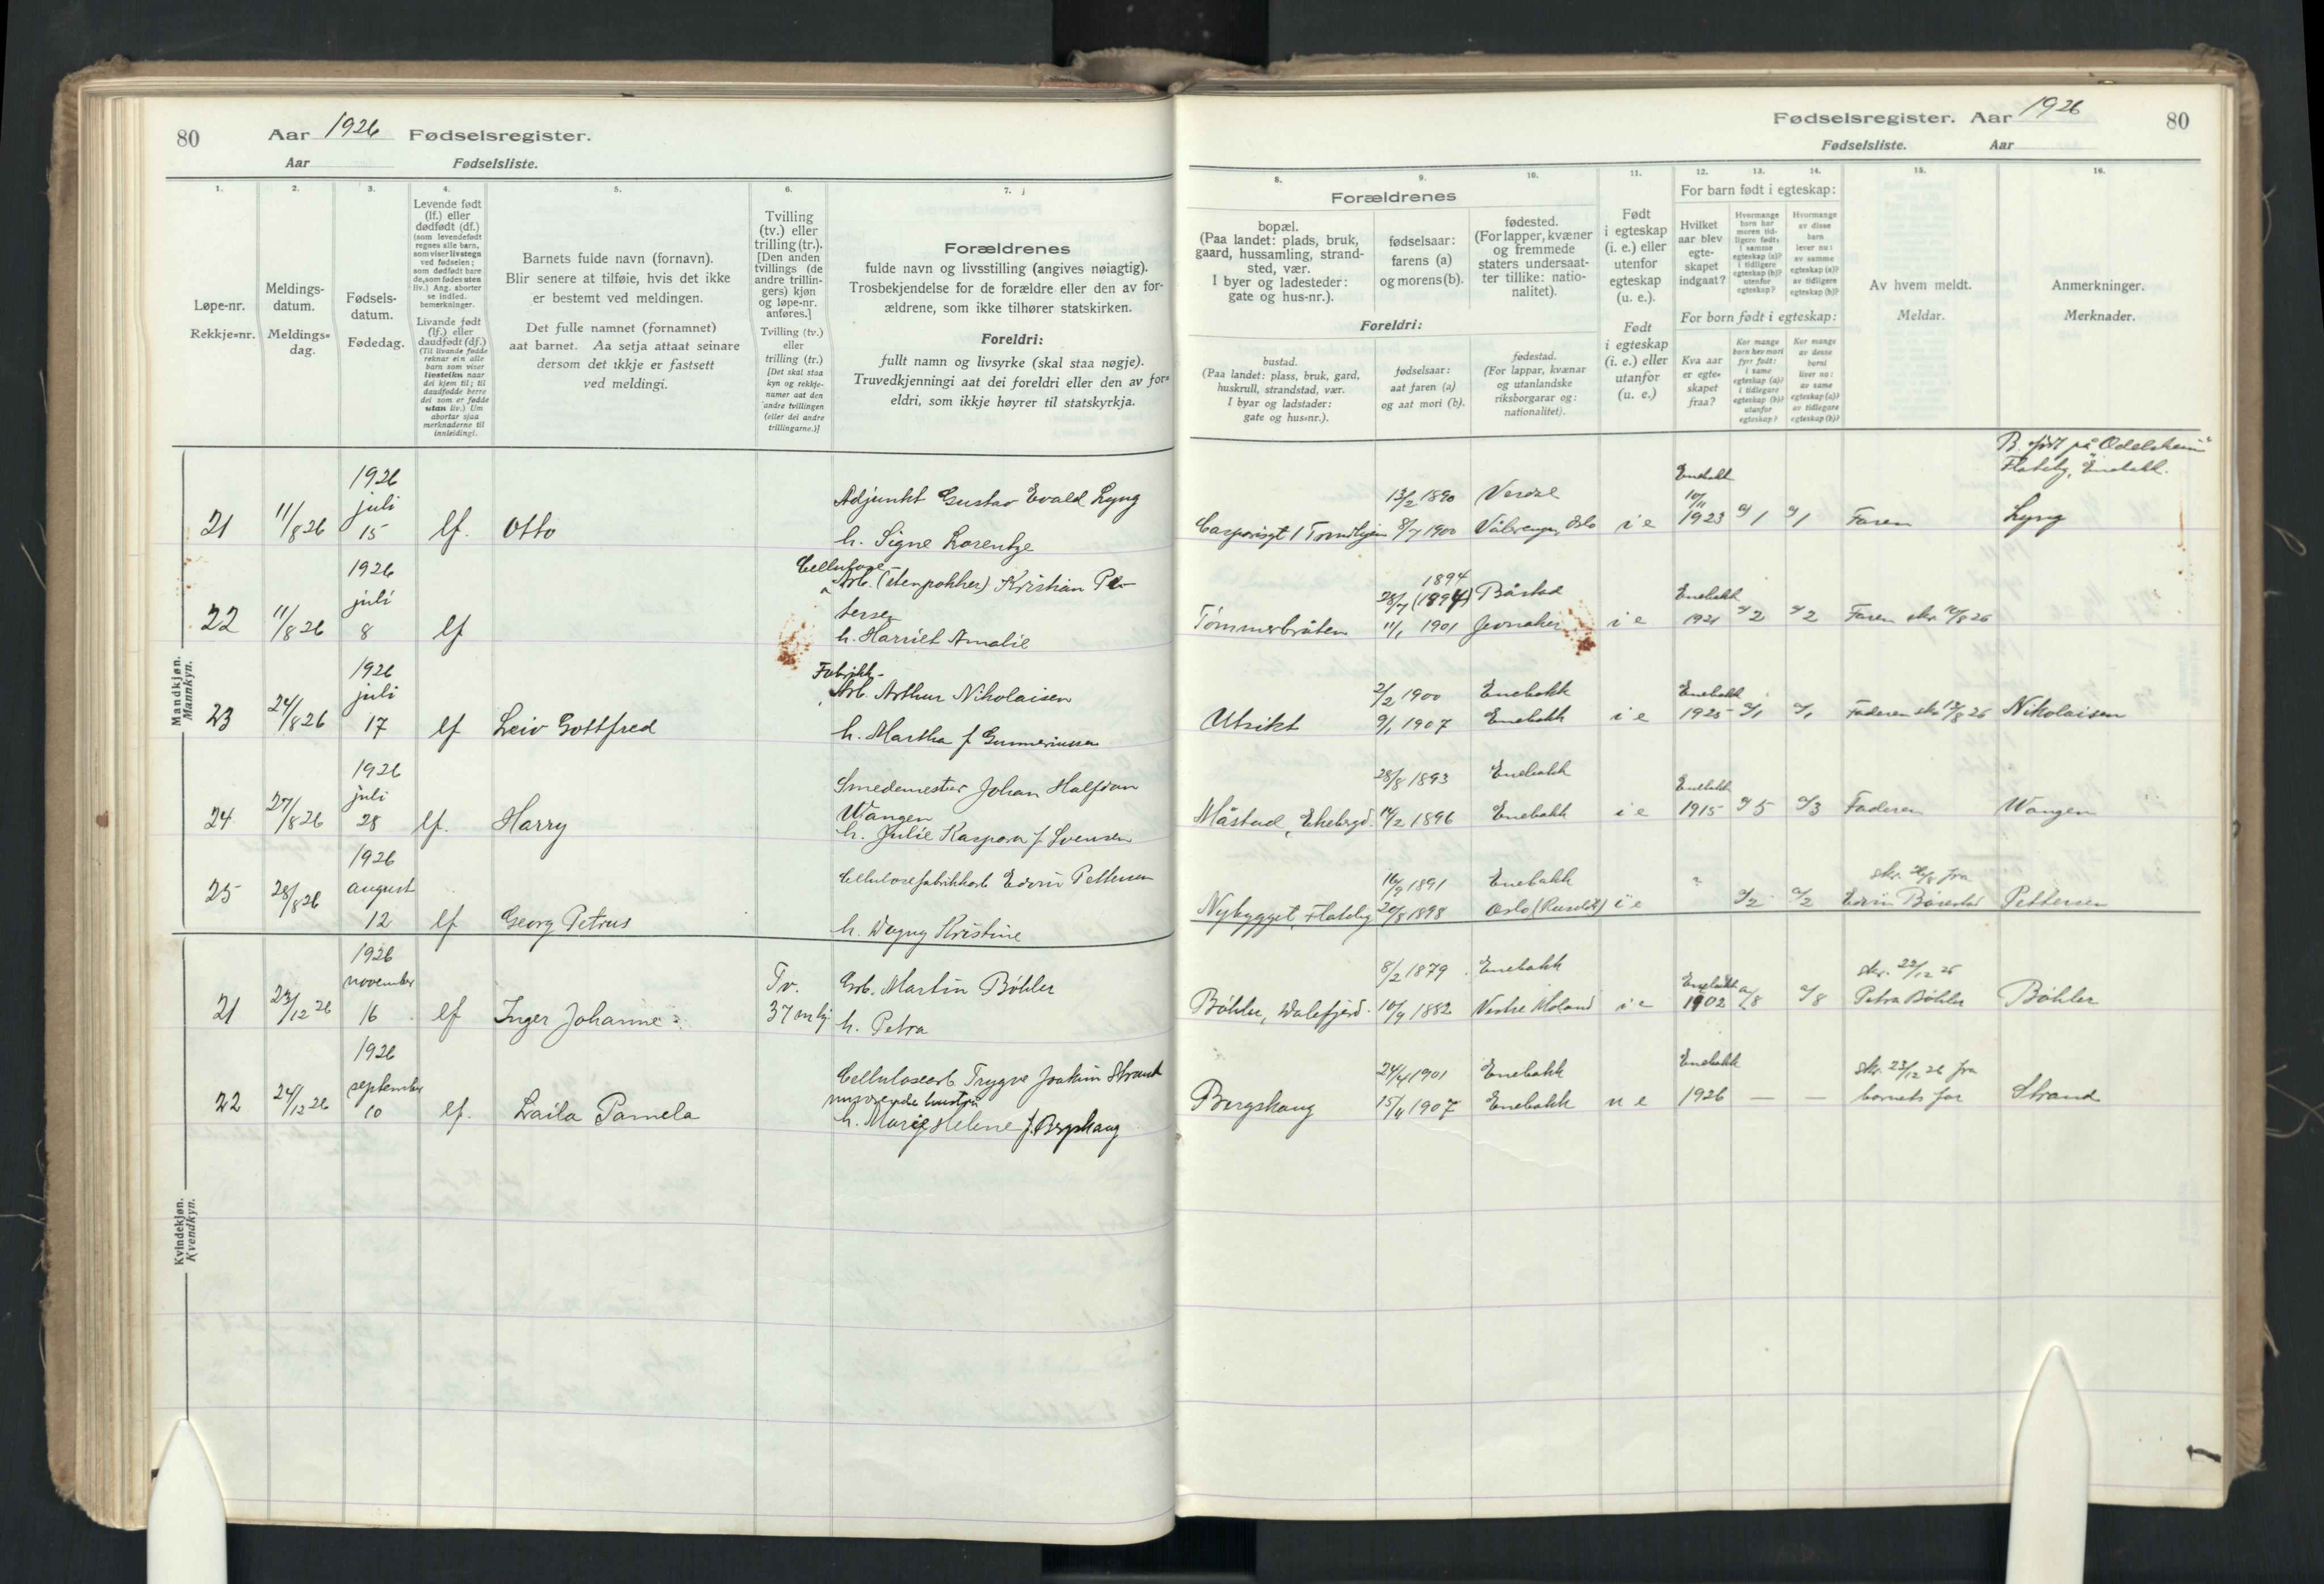 80
Aar 1926 Fødselsregister.
Aar
Fødselsliste.
1.
2.
3.
4.
5.
6.
7.
Løpe-nr.
Rekkje=nr.
Meldings-
datum.
Meldings=
dag.
Fødsels-
datum.
Fødedag.
Levende født
(lf.) eller
dødfødt (df.)
(som levendefødt
regnes alle barn,
som viser livstegn
ved fødselen;
som dødfødt bare
de, som fødes uten
liv.) Ang. aborter
se indled.
bemerkninger.
Livande født
(lf.) eller
daudfødt (df.)
(Til livande fødde
reknar ein alle
barn som viser
livsteikn naar
dei kjem til; til
daudfødde berre
dei som er fødde
utan liv.) Um
abortar sjaa
merknaderne til
innleidingi.
Barnets fulde navn (fornavn).
Blir senere at tilføie, hvis det ikke
er bestemt ved meldingen.
Det fulle namnet (fornamnet)
aat barnet. Aa setja attaat seinare
dersom det ikkje er fastsett
ved meldingi.
Tvilling
(tv.) eller
trilling (tr.).
[Den anden
tvillings (de
andre trillin-
gers) kjøn
og løpe-nr.
anføres.]
Tvilling (tv.)
eller
trilling (tr.)
[Det skal staa
kyn og rekkje-
numer aat den
andre tvillingen
(eller dei andre
trillingarne.)]
Forældrenes
fulde navn og livsstilling (angives nøiagtig).
Trosbekjendelse for de forældre eller den av for-
ældrene, som ikke tilhører statskirken.
Foreldri:
fullt namn og livsyrke (skal staa nøgje).
Truvedkjenningi aat dei foreldri eller den av for=
eldri, som ikkje høyrer til statskyrkja.
Fødselsregister. Aar 1926
80
Fødselsliste.
Aar
8.
9.
10.
11.
12.
13.
14.
15.
16.
Forældrenes
bopæl.
(Paa landet: plads, bruk,
gaard, hussamling, strand-
sted, vær.
I byer og ladesteder:
gate og hus-nr.).
fødselsaar:
farens (a)
og morens (b).
fødested.
(For lapper, kvæner
og fremmede
staters undersaat-
ter tillike: natio-
nalitet).
Foreldri:
bustad.
(Paa landet: plass, bruk, gard,
huskrull, strandstad, vær.
I byar og ladstader:
gate og hus=nr.).
fødselsaar:
aat faren (a)
og aat mori (b).
fødestad.
(For lappar, kvænar
og utanlandske
riksborgarar og:
nationalitet).
Født
i egteskap
(i. e.) eller
utenfor
egteskap
(u. e.).
Født
i egteskap
(i. e.) eller
utanfor
(u. e.)
For barn født i egteskap:
Hvilket
aar blev
egte-
skapet
indgaat?
Hvormange
barn har
moren tid-
ligere født:
i samme
egteskap (a)?
i tidligere
egteskap (b)?
utenfor
egteskap?
Hvormange
av disse
barn
lever nu:
av samme
egteskap (a)?
av tidligere
egteskap (b)?
For born født i egteskap:
Kva aar
er egte=
skapet
fraa?
Kor mange
born hev mori
fyrr født:
i same
egteskap (a)?
i tidlegare
egteskap (b)?
utanfor
egteskap?
Kor mange
av desse
borni
liver no:
av same
egteskap (a)?
av tidlegare
egteskap (b)?
Av hvem meldt.
Meldar.
Anmerkninger.
Merknader.
Mandkjøn.
Mannkyn.
21 11/8 26 1926 juli 15 lf. Otto
Adjunkt Gustav Evald Lyng
h. Signe Lorentze
13/2 1890 Verdal
8/7 1900 Vålerengen, Oslo i e
Enebakk 10/11 1923 a/1 a/1 Faren
B. født på "Odelsheim"
Flateby, Enebakk.
Lyng
22 11/8 26 1926 juli 8 lf
Cellulose-
Arb. (stenpokker) Kristian Pe-
tersen
h. Harriet Amalie
Tømmerbråten
1894
28/7 (1894) Båstad
11/1 1901 Jevnaker i e
Enebakk 1921 a/2 a/2 Faren skr. 10/8 26
23 24/8 26 1926 juli 17 lf Leiv Gottfred
Fabrikk-
Arb. Arthur Nikolaisen
h. Martha f. Gunneriussen
Utsikt
2/2 1900 Enebakk
9/1 1907 Enebakk i e
Enebakk 1925 a/1 a/1 Faderen skr. 13/8 26 Nikolaisen
24 27/8 26 1926 juli 28 lf. Harry
Smedemester Johan Halfdan
Wangen
h. Julie Kaspara f. Svensen
Måstad, Ekebergd.
28/8 1893 Enebakk
14/2 1896 Enebakk i e
Enebakk 1915 a/5 a/3 Faderen Wangen
25 28/8 26 1926 august 12 lf Georg Petrus
Cellulosefabrikkarb. Edvin Pettersen
h. Dagny Kristine
Nybygget, Flateby
16/9 1891 Enebakk
20/8 1898 Oslo i e
? a/2 a/2
skr. 26/8 fra
Pettersen
Kvindekjøn.
Kvendkyn.
21 23/12 26 1926 november 16 lf Inger Johanne
Tv.
37 m kj
Grb. Martin Böhler
h. Petra
Böhler, Dalefjerd.
8/2 1879 Enebakk
10/9 1882 Vestre Moland i e
Enebakk 1902 a/8 a/8
skr. 22/12 26
Petra Böhler Böhler
22 24/12 26 1926 september 10 lf. Laila Pamela
Cellulosearb. Trygve Joakim Strand
nuværende hustru
h. Marie Helene f. Bergshaug
Bergshaug
24/4 1901 Enebakk
15/11 1907 Enebakk u e
Enebakk 1926 — —
skr. 23/12 26 fra
barnets far Strand